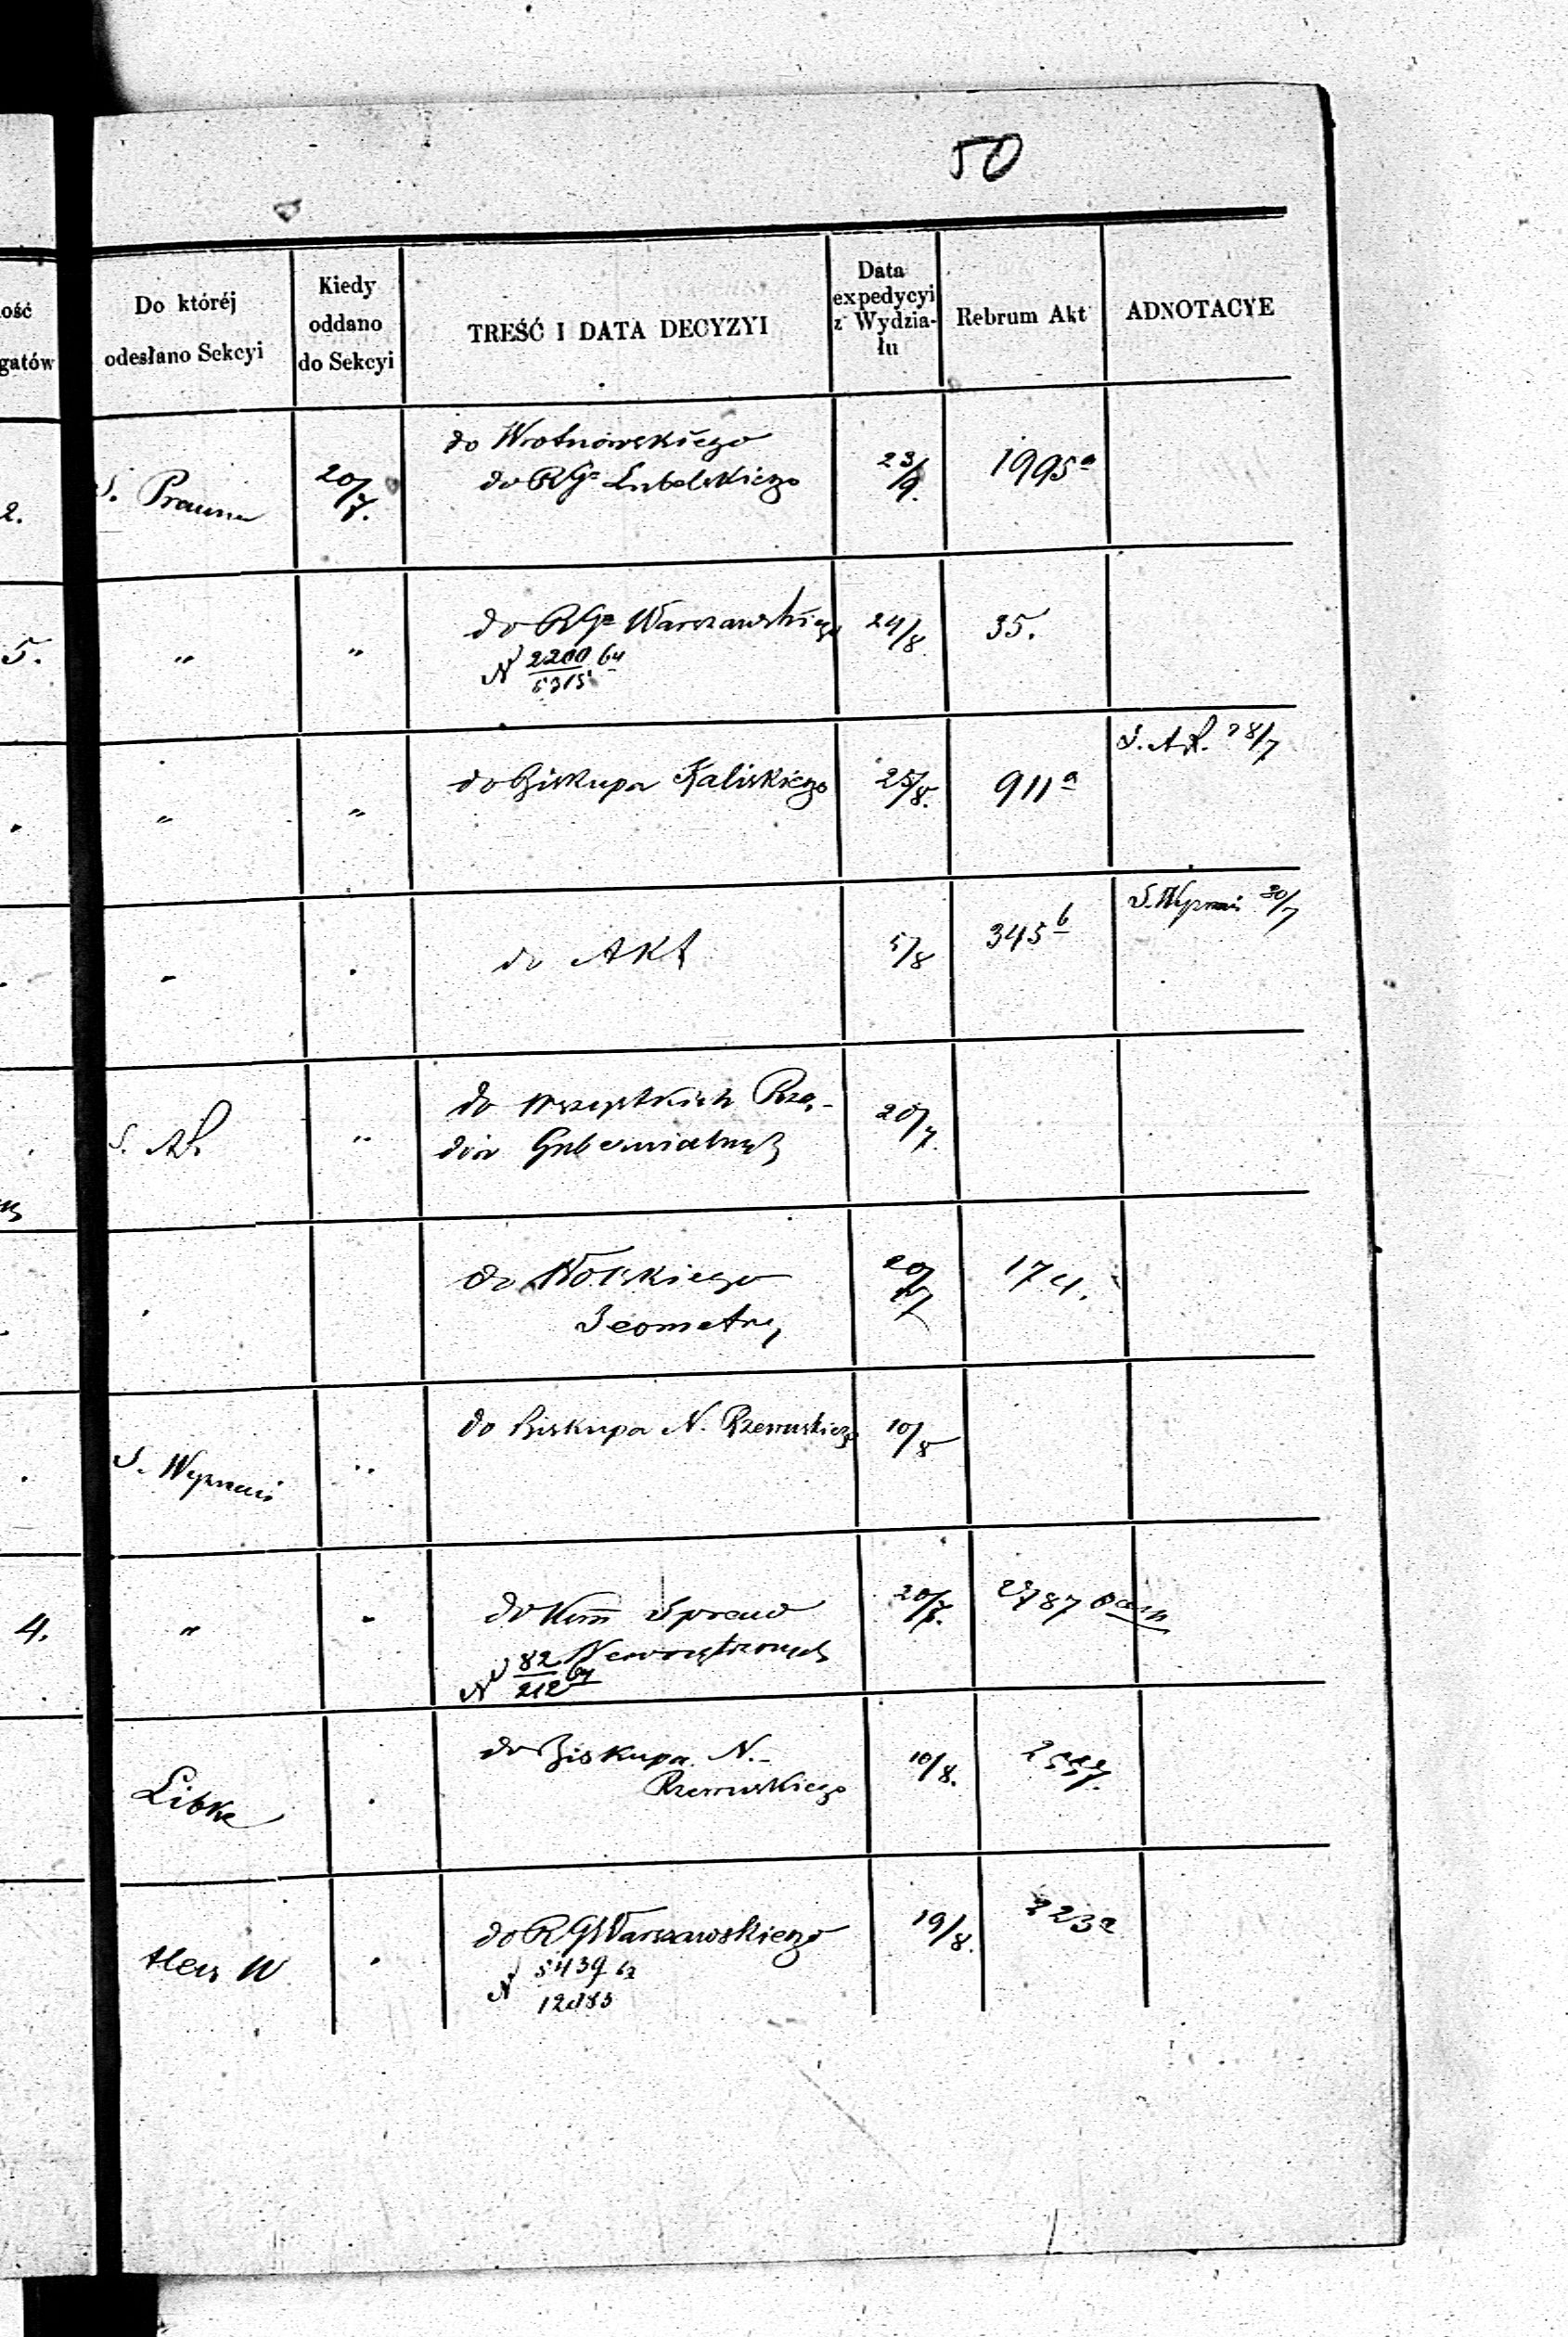 50
ość
gatów
Do któréj
odesłano Sekcyi
Kiedy
oddano
do Sekcyi
TREŚĆ I DATA DECYZYI
Data
expedycyi
z Wydzia-
łu
Rebrum Akt
ADNOTACYE
2.
S. Prawna
20/7.
do Wrotnowskiego
do RGo Lubelskiego
23/9.
1995 a
5.
"
"
do RGo Warszawskiego
N 2200 by
5315
24/8
35.
"
"
do Biskupa Kaliskiego
25/8.
911 a
28/7
"
do Akt
5/8
345 b
S. Wyznań 30/7
S.
"
do wszystkich Rzą-
dów Gubernialnych
20/7.
do Wolskiego
Geometry
20/7
174.
S. Wyznań
"
do Biskupa N.
10/8
4.
"
"
do Kom Spraw
Wewnętrznych
N 82 by
212
20/7.
2787
Libke
do Biskupa N.
10/8.
W
do RG Warszawskiego
N 5439
19/8.